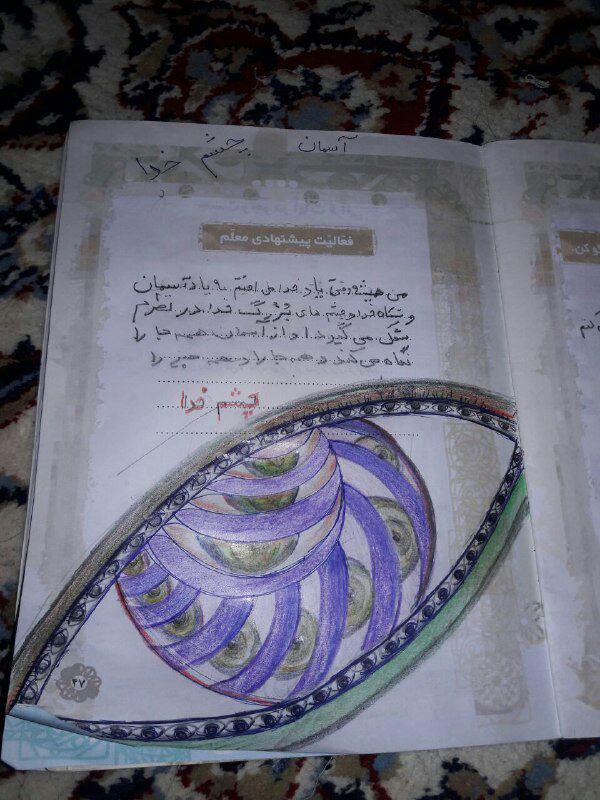 آسمان
چشم خدا
فعالیّت پیشنهادی معلّم
من همیشه وقتی یاد خدا می افتم به یاد آسیمان
و نگاه خدا و چشم های بزرگ خدا در نظرم
شکل می گیرد خدا از آسمان همه جا را
نگاه می کند و همه جا را و همه چیز را
چشم خدا
۴۷